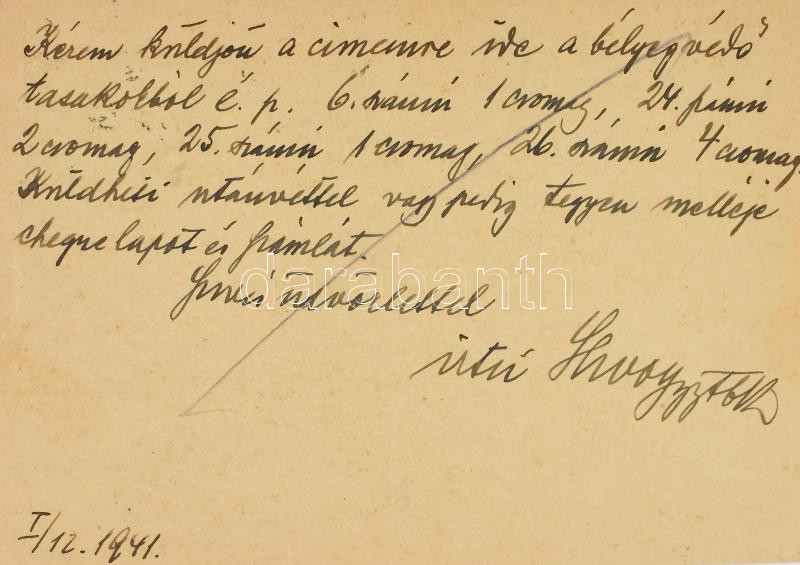 Kérem küldjön a címemre ide a bélyegvédő
tasakokból é. p. 6. számú 1 csomag, 24. számú
2 csomag, 25. számú 1 csomag, 26. számú 4 csomag.
Küldheti utánvéttel vagy pedig tegyen melléje
cheque lapot és számlát.
Szívés üdvözlettel
darabanth
I/12. 1941.